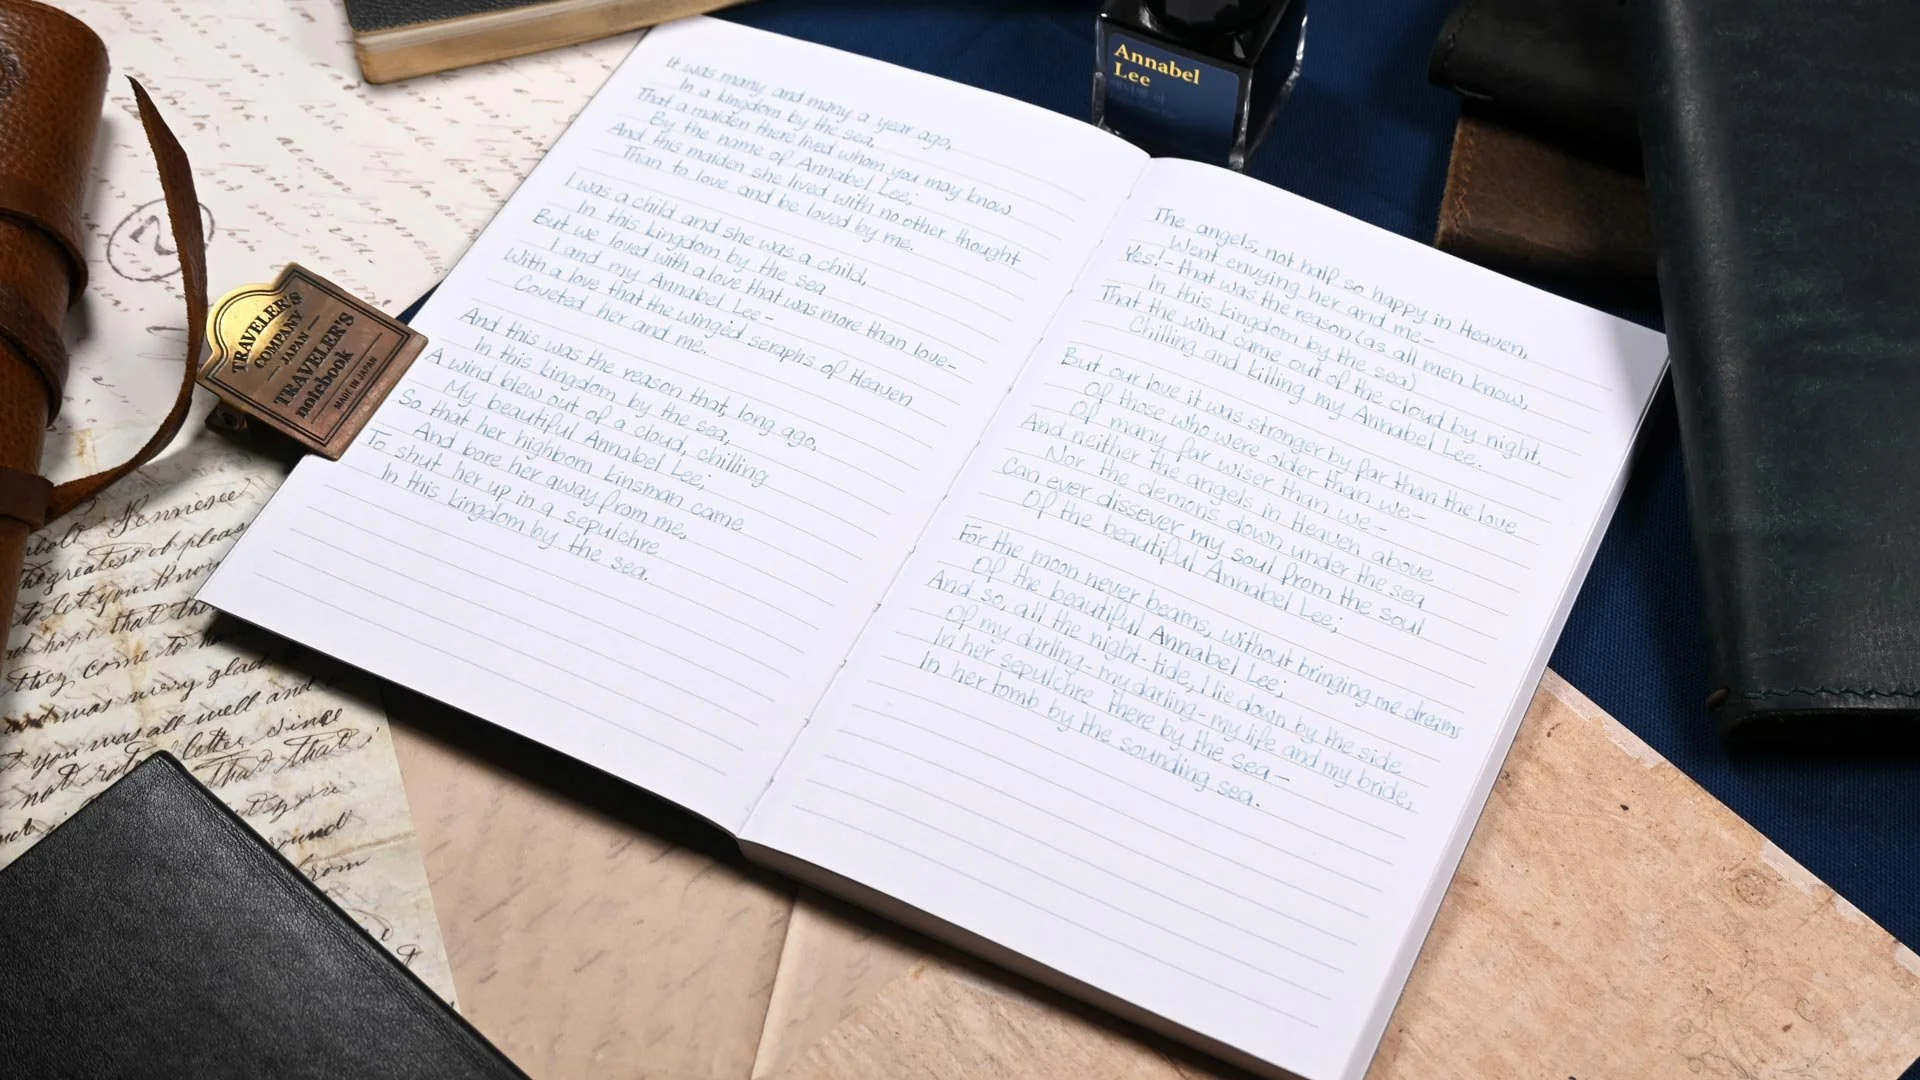 It was many and many a year ago,
In a kingdom by the sea,
That a maiden there lived whom you may know
By the name of Annabel Lee;
And this maiden she lived with no other thought
Than to love and be loved by me.
I was a child and she was a child,
In this kingdom by the sea
But we loved with a love that was more than love-
I and my Annabel Lee-
With a love that the wingèd seraphs of Heaven
Coveted her and me.
And this was the reason that, long ago,
In this kingdom by the sea,
A wind blew out of a cloud, chilling
My beautiful Annabel Lee;
So that her highborn kinsman came
And bare her away from me,
To shut her up in a sepulchre
In this kingdom by the sea.
The angels, not half so happy in Heaven,
Went envying her and me-
Yes!- that was the reason (as all men know,
In this kingdom by the sea)
That the wind came out of the cloud by night,
Chilling and killing my Annabel Lee.
But our love it was stronger by far than the love
Of those who were older than we-
Of many far wiser than we-
And neither the angels in Heaven above
Nor the demons down under the sea
Can ever dissever my soul from the soul
Of the beautiful Annabel Lee;
For the moon never beams, without bringing me dreams
Of the beautiful Annabel Lee;
And so, all the night-tide, I lie down by the side
Of my darling- my darling- my life and my bride,
In her sepulchre there by the sea-
In her tomb by the sounding sea.
Annabel
Lee
TRAVELER'S
COMPANY
JAPAN
TRAVELER'S
notebook
MADE IN JAPAN
2
Tennesee
the greatest of pleas
to let you know
d hope that the
they come to ha
and was very glad
t you was all well and
not letter since
that that i
you
ound
from